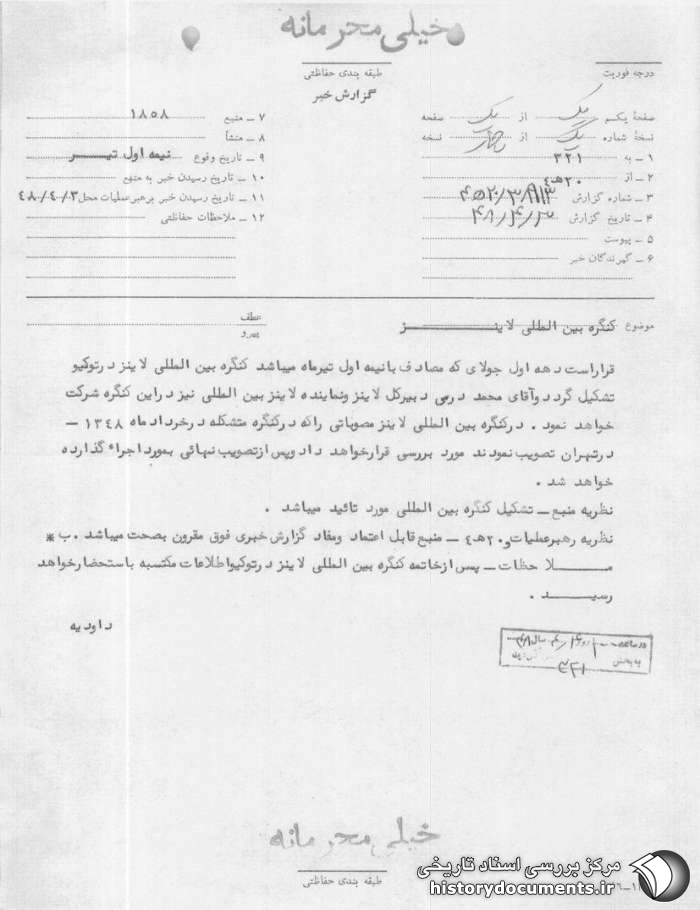 خیلی محرمانه
طبقه بندی حفاظتی
درجه فوریت
گزارش خبر
صفحهٔ یکم یک از یک صفحه
نسخهٔ شماره یک از چهار نسخه
۱ ـ به ۳۲۱
۲ ـ از ۲۰هـ۴
۳ ـ شماره گزارش
۴ ـ تاریخ گزارش
۵ ـ پیوست
۶ ـ گیرندگان خبر
۷ ـ منبع ۱۸۵۸
۸ ـ منشأ
۹ ـ تاریخ وقوع نیمه اول تیـــر
۱۰ ـ تاریخ رسیدن خبر به منبع
۱۱ ـ تاریخ رسیدن خبر برهبرعملیات محل ۴۸/۴/۳
۱۲ ـ ملاحظات حفاظتی
موضوع کنگره بین المللی لاینـــــــز
عطف
پیرو
قراراست دهه اول جولای که مصادف بانیمه اول تیرماه میباشد کنگره بین المللی لاینز درتوکیو
تشکیل گردد وآقای محمد درمی دبیرکل لاینز ونماینده لاینز بین المللی نیز دراین کنگره شرکت
خواهد نمود . درکنگره بین المللی لاینز مصوباتی راکه درکنگره متشکله درخردادماه ۱۳۴۸ ـ
درتهران تصویب نمودند مورد بررسی قرارخواهد داد وپس ازتصویب نهائی بمورد اجراء گذارده
خواهد شد .
نظریه منبع ـ تشکیل کنگره بین المللی مورد تائید میباشد .
نظریه رهبرعملیات و ۲۰هـ۴ ـ منبع قابل اعتماد ومفاد گزارش خبری فوق مقرون بصحت میباشد . ب*
مـــلاحظات ـ پس ازخاتمه کنگره بین المللی لاینز درتوکیو اطلاعات مکتسبه باستحضارخواهد
رسیـــد .
داودیه
به بخش ۳۲۱
خیلی محرمانه
طبقه بندی حفاظتی
مرکز بررسی اسناد تاریخی
historydocuments.ir